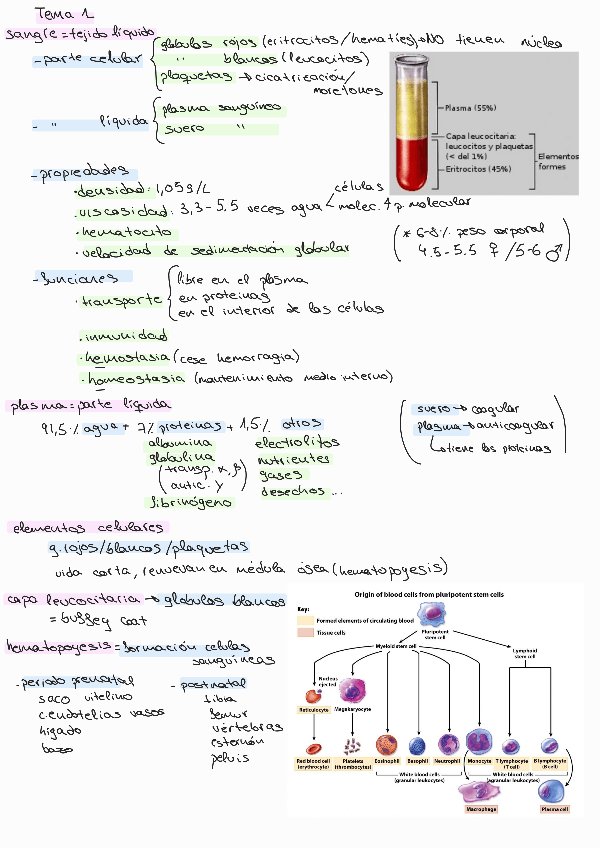 Tema 1
sangre = tejido líquido
- parte celular
globulos rojos (eritrocitos/hematíes) → NO tienen núcleo
" blancos (leucocitos)
plaquetas → cicatrización/
moretones
- " líquida
plasma sanguíneo
suero "
Plasma (55%)
Capa leucocitaria:
leucocitos y plaquetas
(< del 1%)
Eritrocitos (45%)
Elementos
formes
- propiedades
· densidad: 1,05 g/L
· viscosidad: 3,3-5.5 veces agua
células
molec. ↑ p. molecular
· hematocito
· velocidad de sedimentación globular
(* 6-8% peso corporal
4.5-5.5 ♀ / 5-6 ♂)
- funciones
· transporte
libre en el plasma
en proteinas
en el interior de las células
· inmunidad
· hemostasia (cese hemorragia)
· homeostasia (mantenimiento medio interno)
plasma = parte líquida
91,5% agua + 7% proteinas + 1,5% otros
albumina
globulina
(transp. α, β)
(antic. γ)
fibrinógeno
electrolitos
nutrientes
gases
desechos ...
(suero → coagular
plasma → anticoagular
↳ tiene las proteinas)
elementos celulares
g. rojos/blancos/plaquetas
vida corta, renuevan en médula ósea (hematopoyesis)
capa leucocitaria → globulos blancos
= buffey coat
hematopoyesis = formación celulas
sanguíneas
- periodo prenatal
saco vitelino
c. endotelias vasos
higado
bazo
- postnatal
tibia
femur
vértebras
esternón
pelvis
Origin of blood cells from pluripotent stem cells
Key:
Formed elements of circulating blood
Tissue cells
Pluripotent
stem cell
Myeloid stem cell
Lymphoid
stem cell
Nucleus
ejected
Reticulocyte
Megakaryocyte
Red blood cell
(erythrocyte)
Platelets
(thrombocytes)
Eosinophil
Basophil
Neutrophil
Monocyte
T lymphocyte
(T cell)
B lymphocyte
(B cell)
White blood cells
(granular leukocytes)
White blood cells
(agranular leukocytes)
Macrophage
Plasma cell